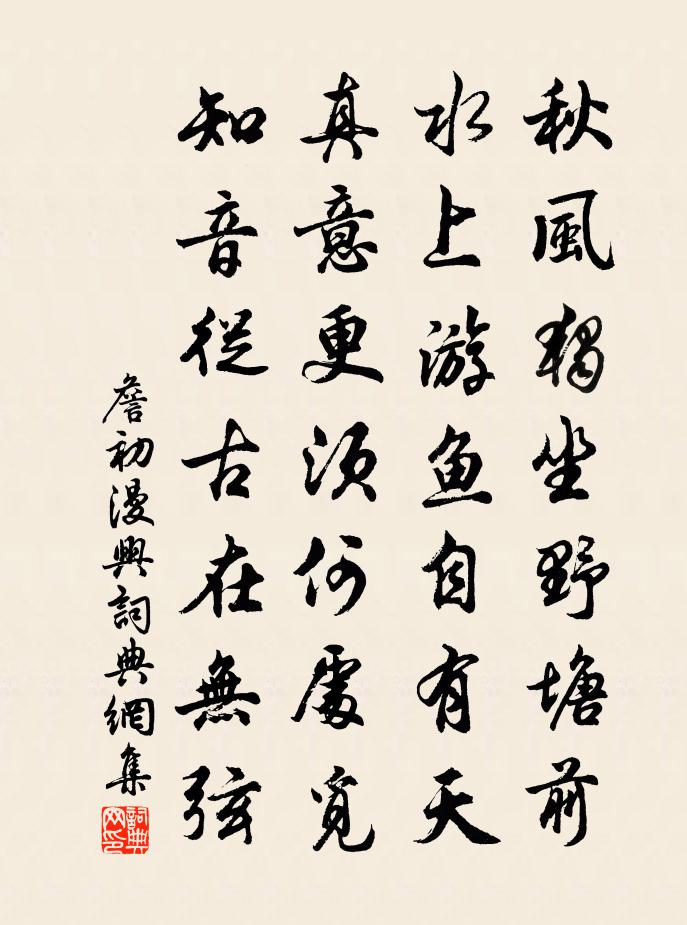 秋風獨坐野塘前
水上游鱼自有天
真意更須何處覓
知音從古在無弦
詹初漫興詞典網集
詞典网印